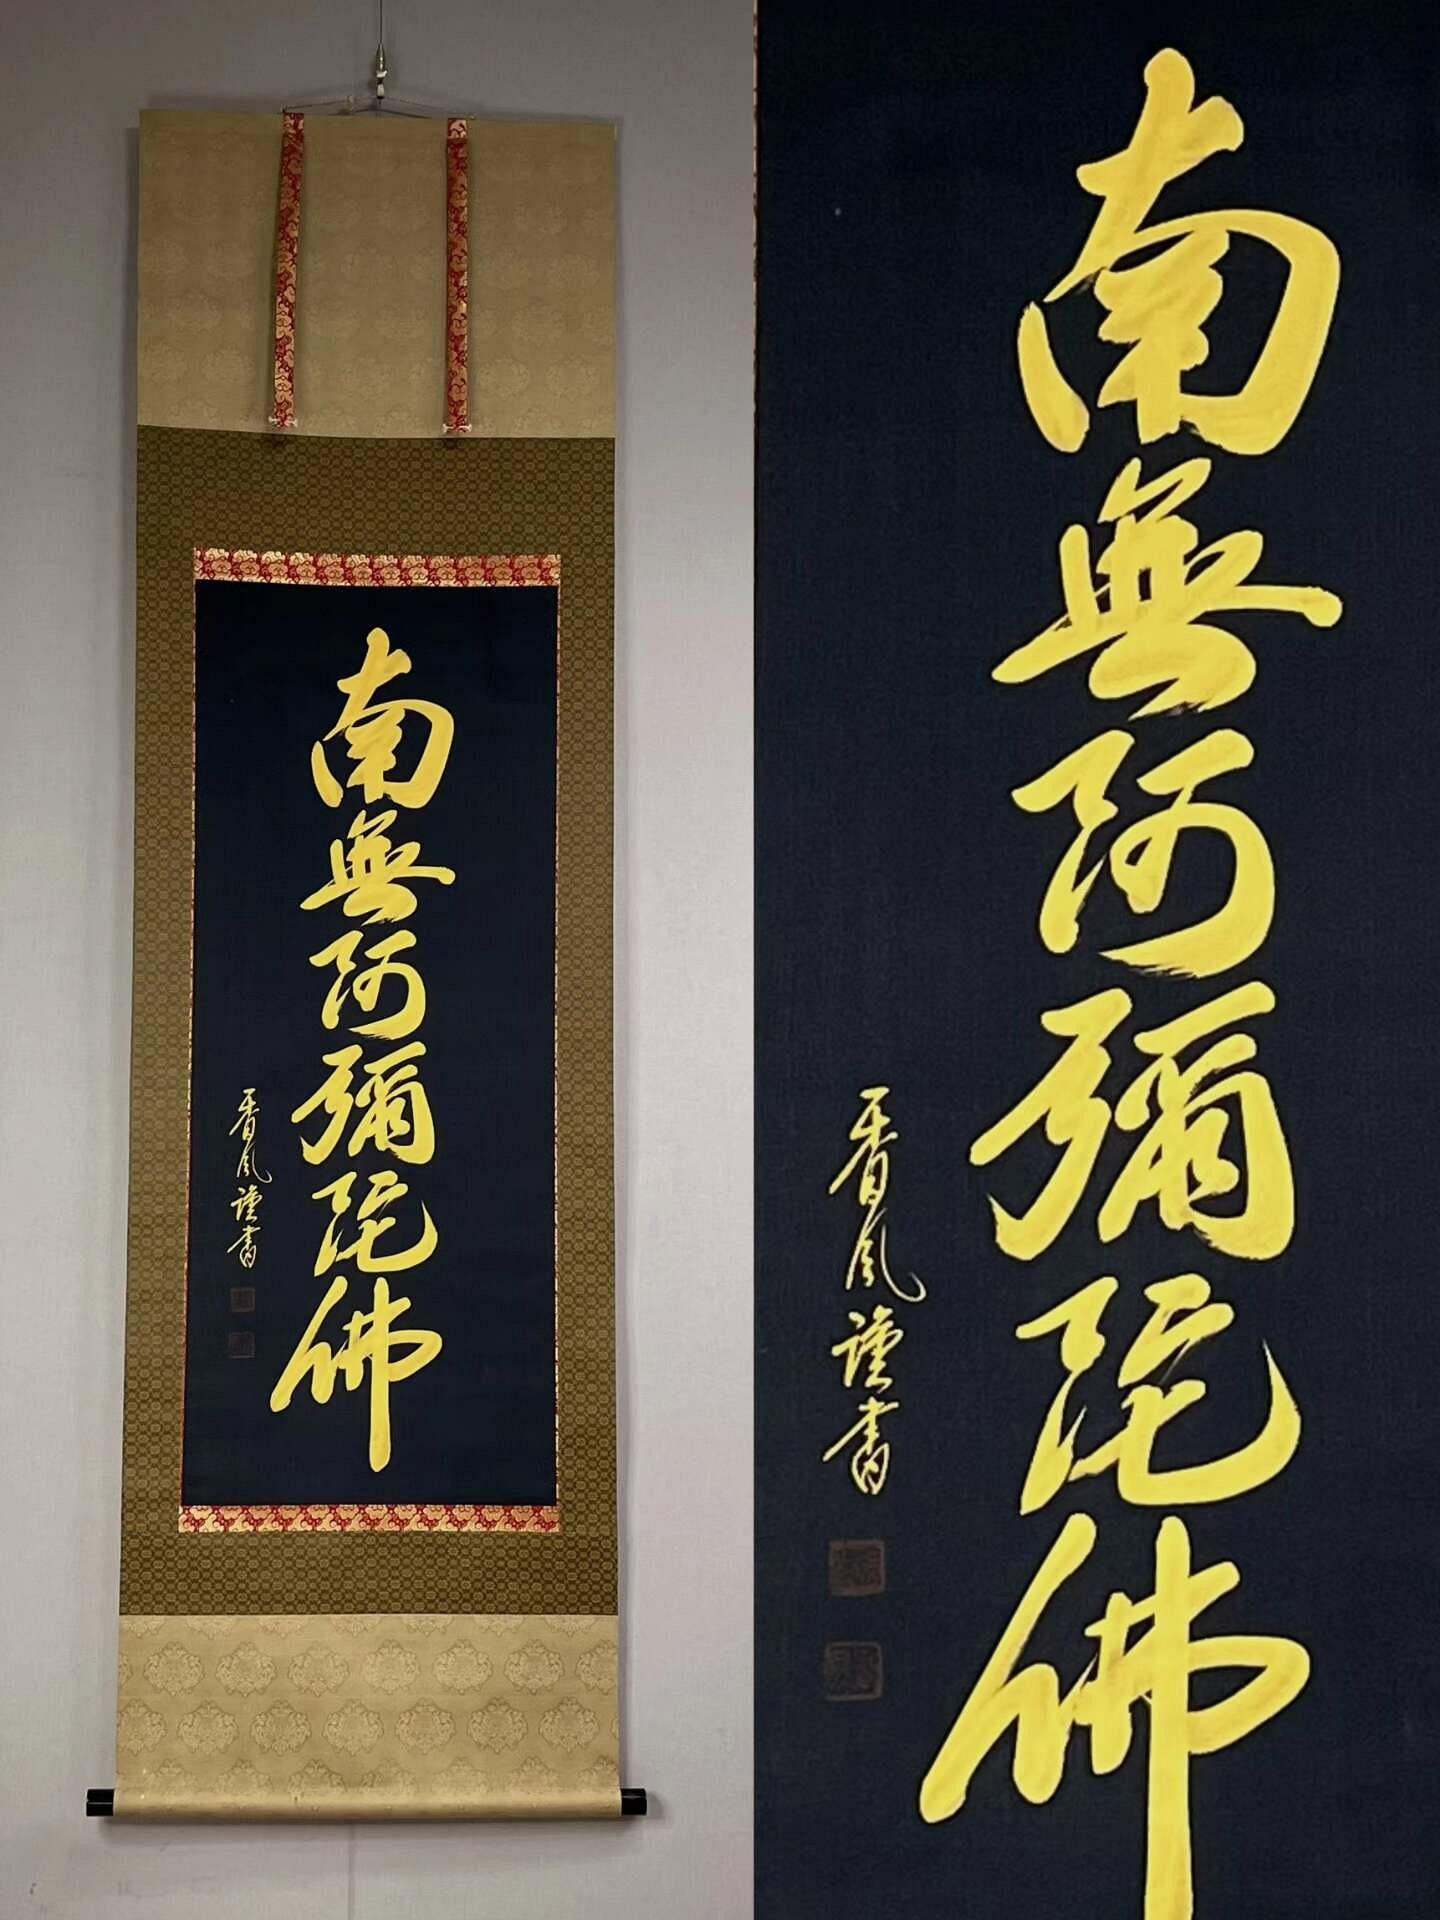 南無阿彌陀佛
香風謹書
南無阿彌陀佛
香風謹書